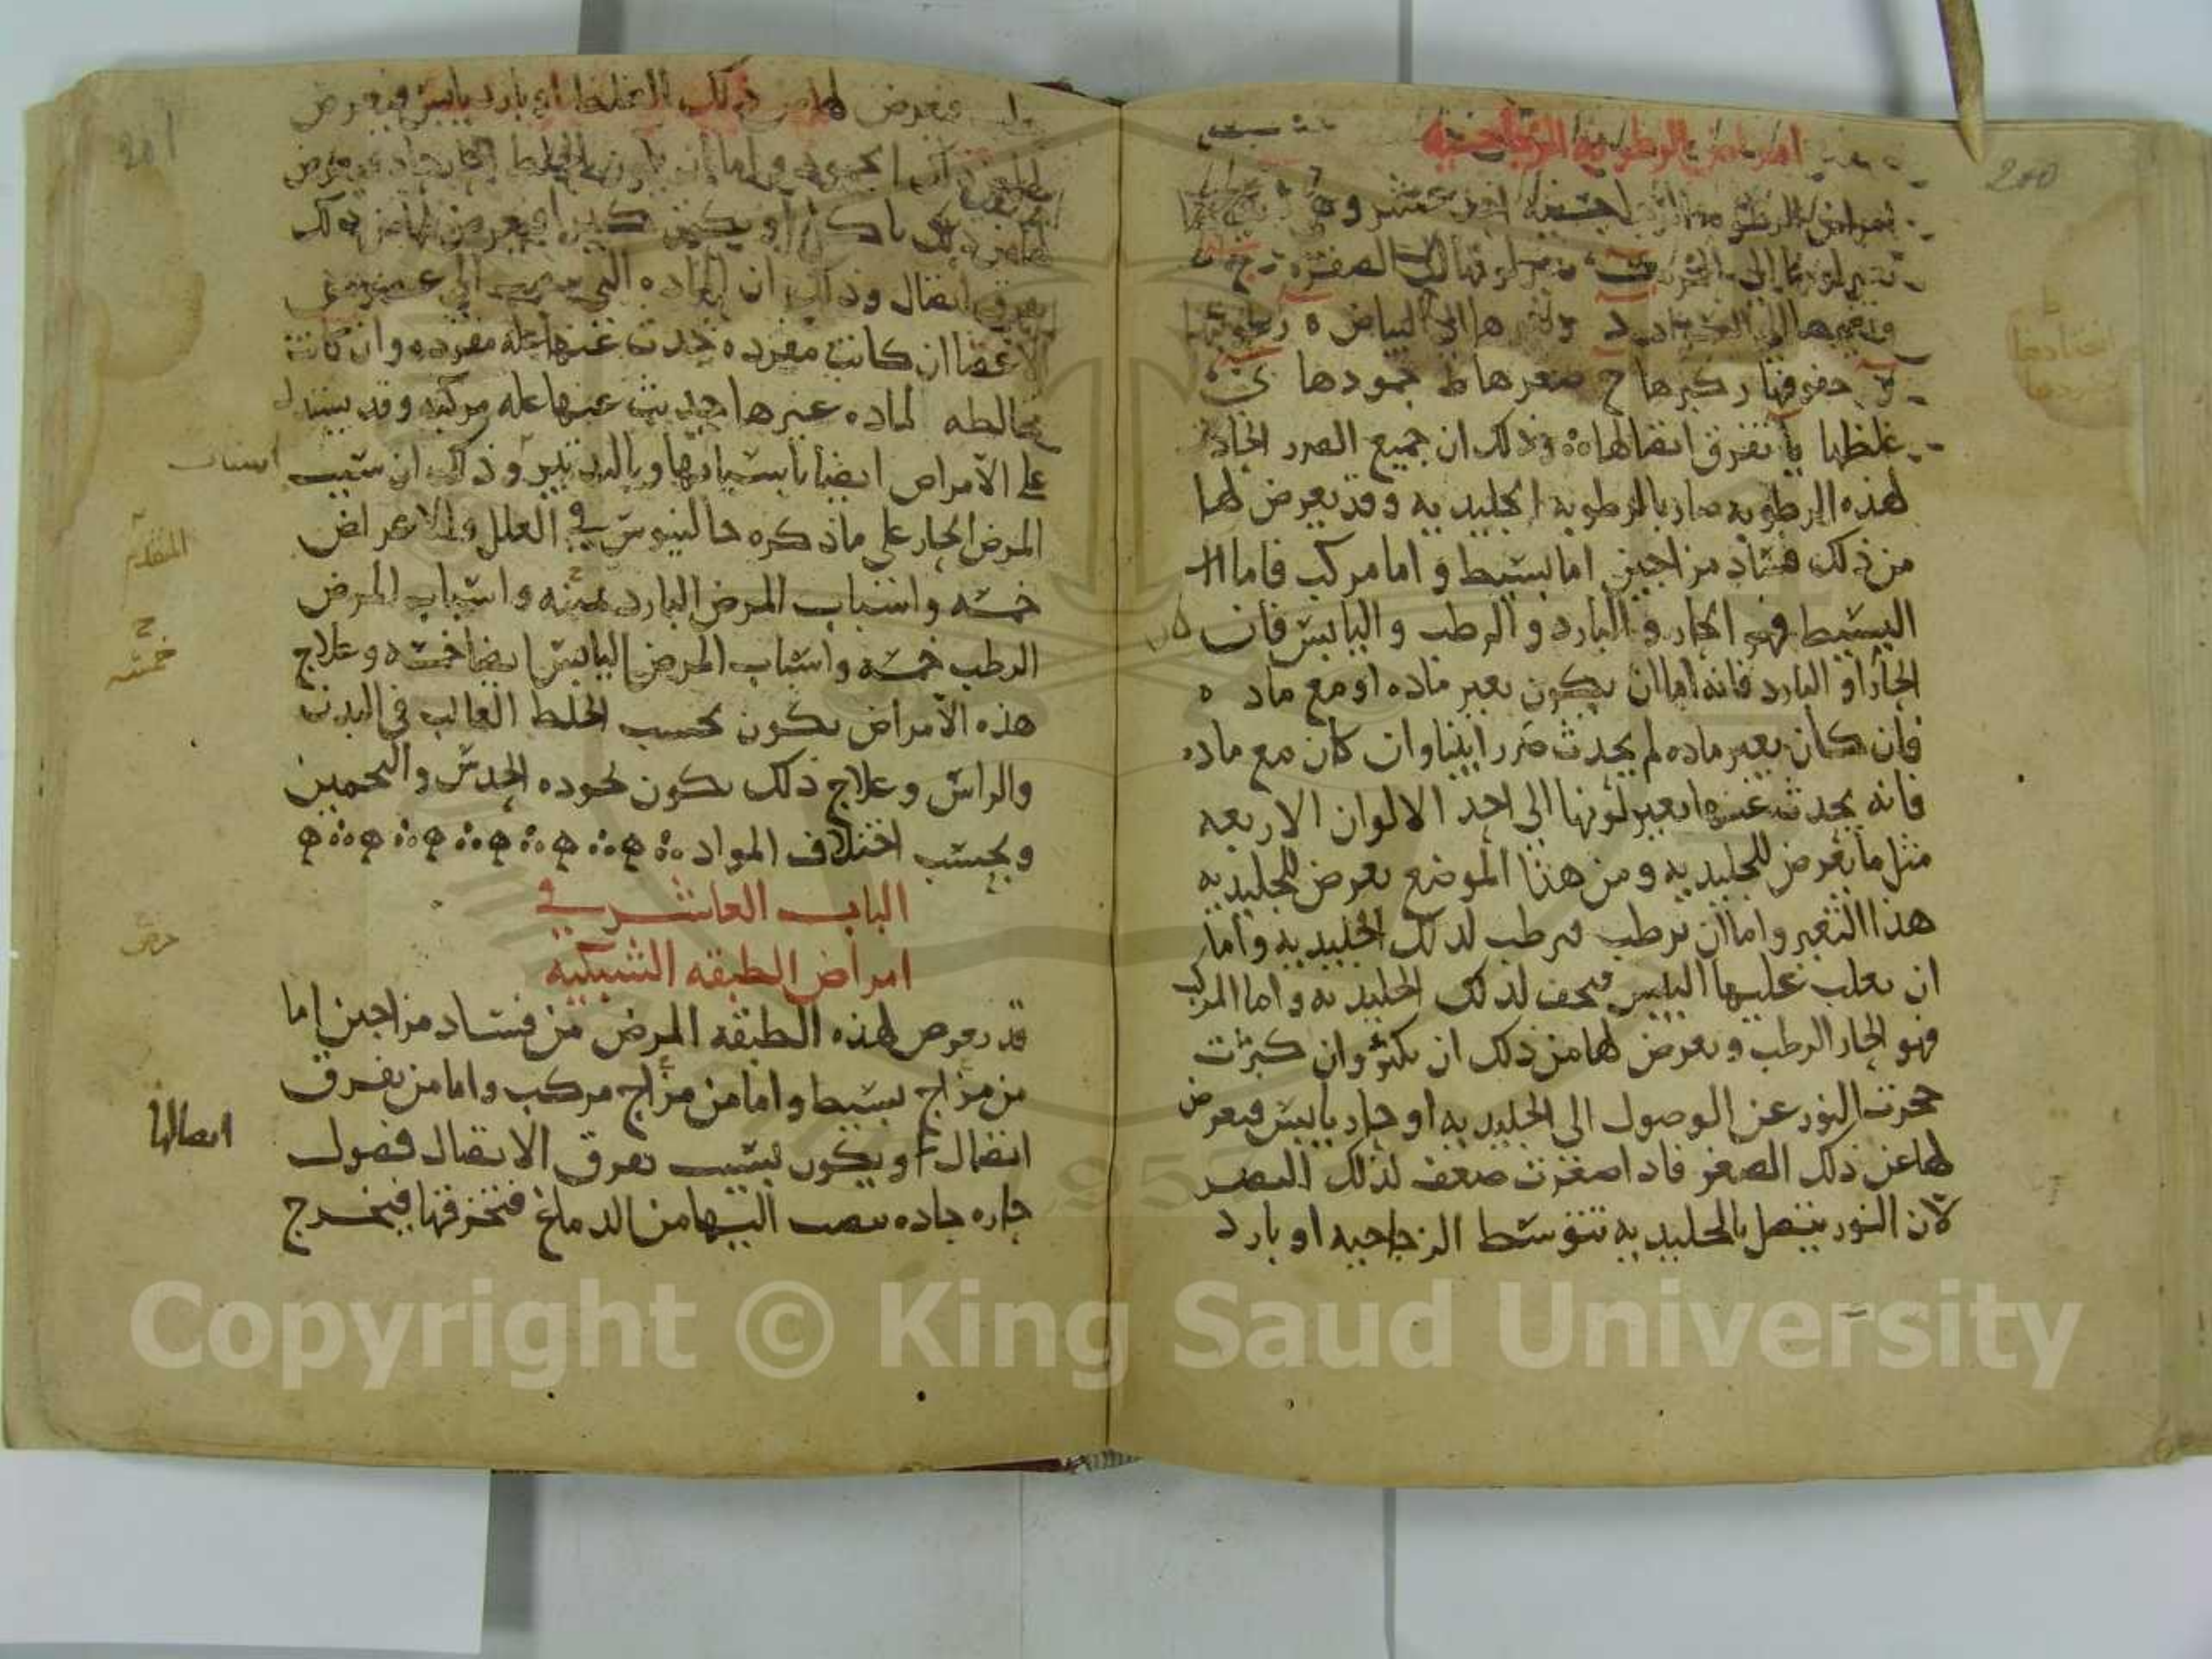 200
امراض الرطوبه الزجاجيه
امراض الرطوبه الزجاجيه احد عشر وهي
تغير لونها الى الحمره تغير لونها الى الصفره ج
وتغيرها الى السواد د وتغيرها الى البياض ه رطوبتها
و جفوفها ز كبرها ح صغرها ط جمودها ي
غلظها يا تفرق اتصالها وذلك ان جميع الضرر الحادث
لهذه الرطوبه ضار بالرطوبه الجليديه وقد يعرض لها
من ذلك فساد مزاجين اما بسيط واما مركب فاما
البسيط فهو الحار والبارد والرطب واليابس فان كان
الحار او البارد فانه اما ان يكون بغير ماده او مع ماده
فان كان بغير ماده لم يحدث ضررا بينا وان كان مع ماده
فانه يحدث عنها تغير لونها الى احد الالوان الاربعه
مثل ما يعرض للجليديه ومن هذا الموضع يعرض للجليديه
هذا التغير واما ان ترطب فترطب لذلك الجليديه واما
ان يغلب عليها اليبس فتجف لذلك الجليديه واما المركب
فهو الحار الرطب ويعرض لها من ذلك ان تكبر وان كبرت
حجزت النور عن الوصول الى الجليديه او حار يابس فيعرض
لها عن ذلك الصغر فاذا صغرت ضعف لذلك البصر
لان النور يتصل بالجليديه بتوسط الزجاجيه او بارد
201
فيعرض لها من ذلك الغلظ او بارد يابس فيعرض
لها من ذلك الجمود واما ان يكون الخلط الحار حاد فيعرض
تفرق اتصال وذلك ان الماده التي تنصب الى عضو من
الاعضا ان كانت مفرده حدث عنها عله مفرده وان كانت
مخالطه لماده غيرها حدث عنها عله مركبه وقد يستدل
على الامراض ايضا باسبابها وبالتدبير وذلك ان سبب
اسباب
المرض الحار على ما ذكره جالينوس في العلل والاعراض
المتقدم
خمسه واسباب المرض البارد ثمنيه واسباب المرض
الرطب خمسه واسباب المرض اليابس ايضا خمسه وعلاج
خمسه
هذه الامراض يكون بحسب الخلط الغالب في البدن
والراس وعلاج ذلك يكون بجوده الحدس والتخمين
وبحسب اختلاف المواد
الباب العاشر في
امراض الطبقه الشبكيه
قد يعرض لهذه الطبقه المرض من فساد مزاجين اما
من مزاج بسيط واما من مزاج مركب واما من تفرق
اتصال او يكون بسبب تفرق الاتصال فضول
اتصالها
حاره حاده تنصب اليها من الدماغ فتخرقها فيخرج
Copyright © King Saud University